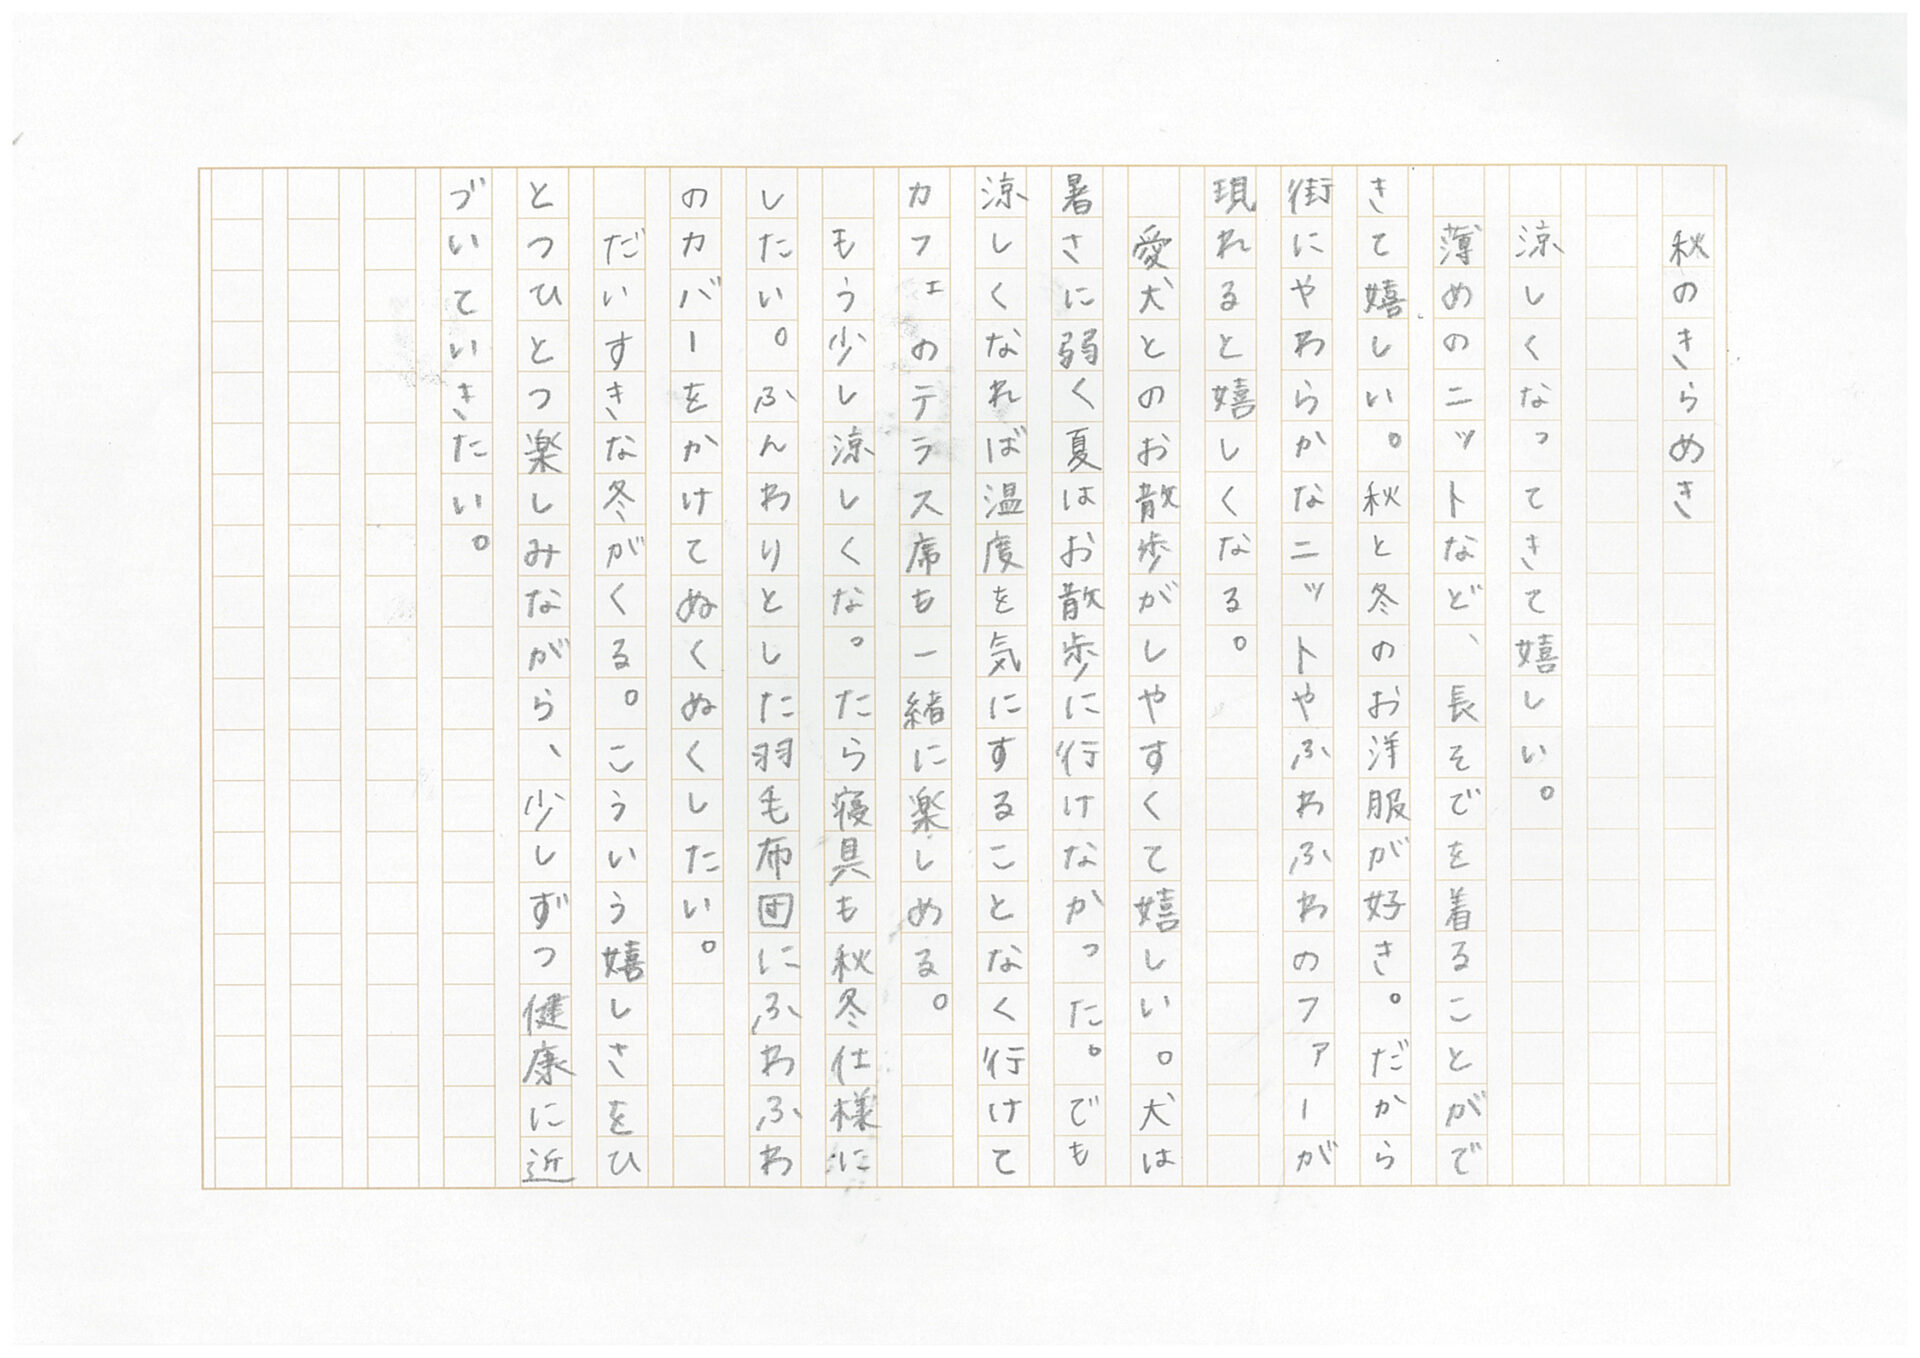 秋のきらめき
涼しくなってきて嬉しい。
薄めのニットなど、長そでを着ることがで
きて嬉しい。秋と冬のお洋服が好き。だから
街にやわらかなニットやふわふわのファーが
現れると嬉しくなる。
愛犬とのお散歩がしやすくて嬉しい。犬は
暑さに弱く夏はお散歩に行けなかった。でも
涼しくなれば温度を気にすることなく行けて
カフェのテラス席も一緒に楽しめる。
もう少し涼しくな。たら寝具も秋冬仕様に
したい。ふんわりとした羽毛布団にふわふわ
のカバーをかけてぬくぬくしたい。
だいすきな冬がくる。こういう嬉しさをひ
とつひとつ楽しみながら、少しずつ健康に近
づいていきたい。